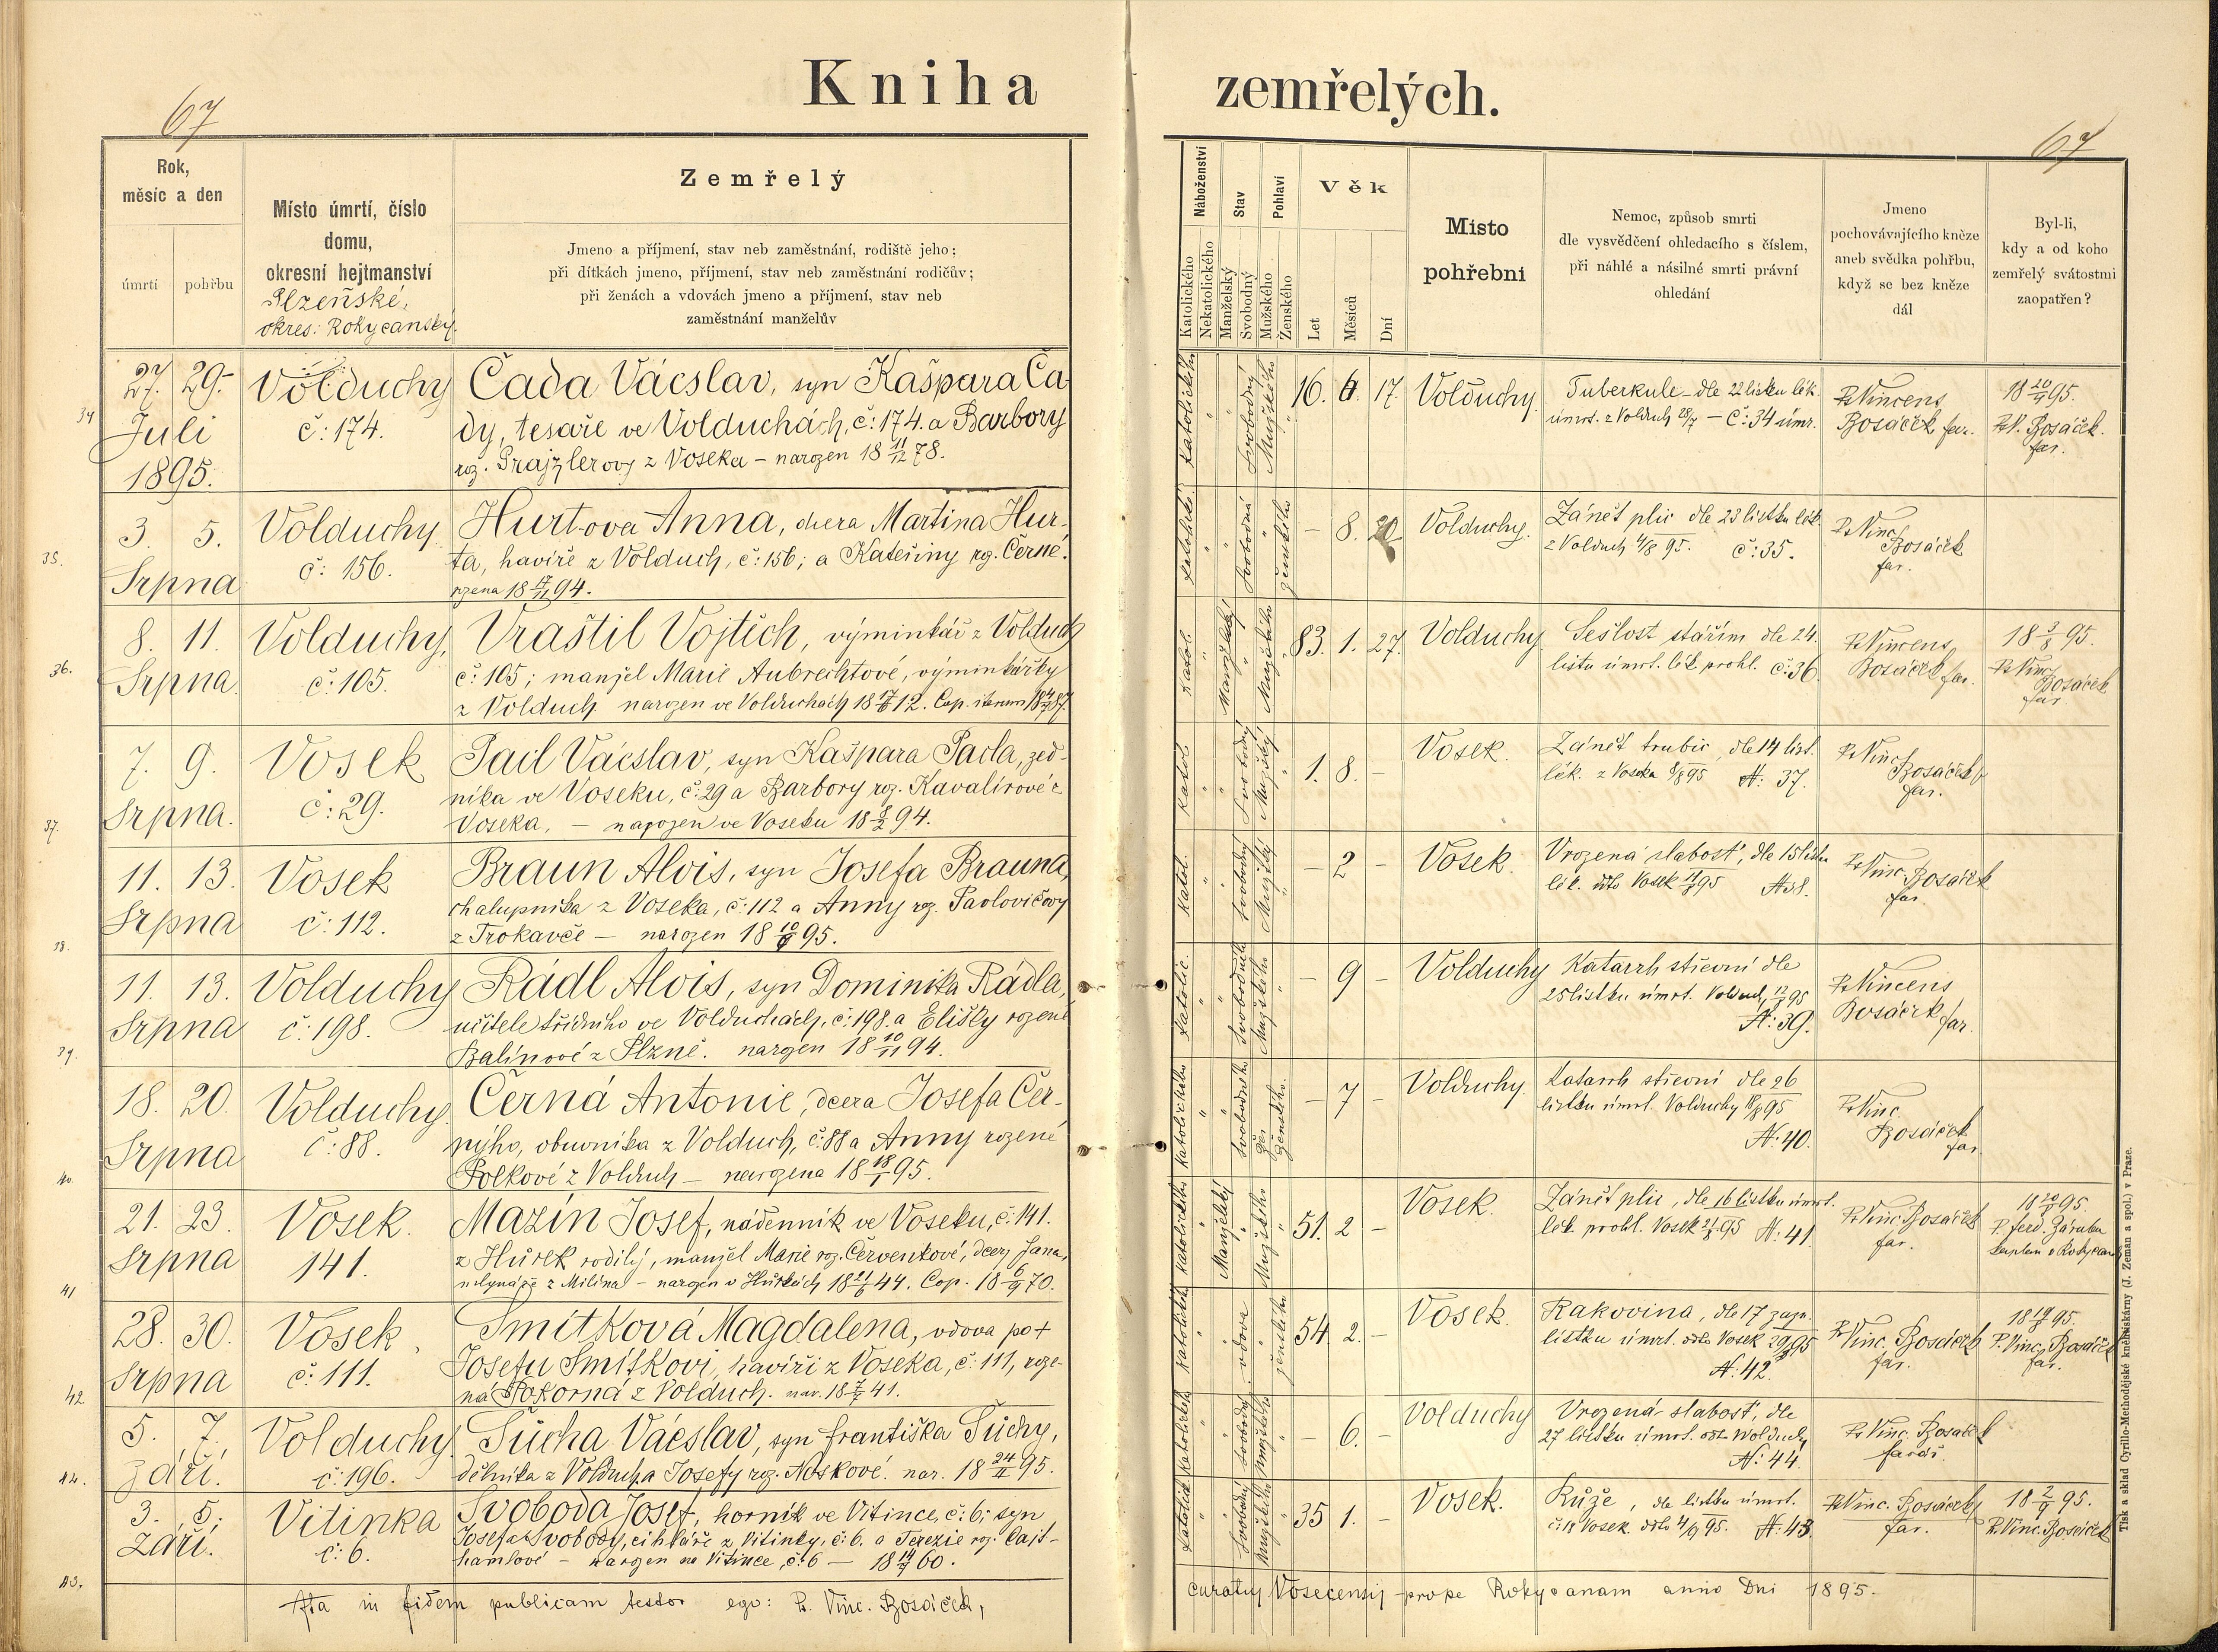 Kniha
zemřelých.
67
67
Rok,
měsíc a den
úmrtí
pohřbu
Místo úmrtí, číslo
domu,
okresní hejtmanství
Plzeňské,
okres: Rokycanský.
Zemřelý
Jmeno a příjmení, stav neb zaměstnání, rodiště jeho;
při dítkách jmeno, příjmení, stav neb zaměstnání rodičův;
při ženách a vdovách jmeno a přijmení, stav neb
zaměstnání manželův
Náboženství
Katolického
Nekatolického
Stav
Manželský
Svobodný
Pohlaví
Mužského
Ženského
Věk
Let
Měsíců
Dní
Místo
pohřebni
Nemoc, způsob smrti
dle vysvědčení ohledacího s číslem,
při náhlé a násilné smrti právní
ohledání
Jmeno
pochovávajícího kněze
aneb svědka pohřbu,
když se bez kněze
dál
Byl-li,
kdy a od koho
zemřelý svátostmi
zaopatřen?
34
27. 29.
Juli
1895.
Volduchy
č: 174.
Čada Vácslav, syn Kašpara Ča
dy, tesaře ve Volduchách, č: 174. a Barbory
roz. Prajzlerovy z Voseka – narozen 18 11/12 78.
Katolického
Svobodný
Mužského
16. 6. 17.
Volduchy.
Tuberkule – dle 22 lístku lék.
úmrt. z Volduch 28/7 – Č: 34 úmr.
P. Vincens
Bosáček far.
18 20/7 95.
P. V. Bosáček.
far.
35.
3. 5.
Srpna
Volduchy
č: 156.
Hurtova Anna, dcera Martina Hur-
ta, havíře z Volduch, č: 156; a Kateřiny roz. Černé.
rozena 18 17/11 94.
Svobodná
ženského
– 8. 20
Volduchy.
Zánět plic dle 23 lístku lék.
z Volduch 4/8 95. č: 35.
P. Vinc.
Bosáček
far.
36.
8. 11.
Srpna.
Volduchy,
č: 105.
Vraštil Vojtěch, výminkář z Volduch
č: 105; manžel Marie Aubrechtové, výminkářky
z Volduch narozen ve Volduchách 18 17/6 12. Cop. iterum
Katol.
Manželský
Mužského
83. 1. 27.
Volduchy
Sešlost stářím dle 24.
lístu úmrt. lék. prohl. č: 36.
P. Vincens
Bosáček far.
18 3/8 95.
P. Vinc.
Bosáček
far
37.
7. 9.
Srpna.
Vosek
č: 29.
Pacl Vácslav, syn Kašpara Pacla, zed-
níka ve Voseku, č: 29 a Barbory roz. Kavalírové z
Voseka, – narozen ve Voseku 18 8/2 94.
Katol.
Svobodný
Mužský
1. 8. –
Vosek.
Zánět trubic, dle 14 líst.
lék. z Voseka 8/8 95 N: 37.
P. Vinc.
Bosáček
far.
38.
11. 13.
Srpna
Vosek
č: 112.
Braun Alois, syn Josefa Brauna,
chalupníka z Voseka, č: 112 a Anny roz. Pavlovičovy
z Trokavče – narozen 18 10/6 95.
Katol.
Svobodný
Mužský
– 2 –
Vosek.
Vrozená slabosť, dle 15 lístku
lék. ddo Vosek 11/8 95 N 38.
P. Vinc. Bosáček
far.
39.
11. 13.
Srpna
Volduchy
č: 198.
Rádl Alois, syn Dominika Rádla,
učitele třídního ve Volduchách, č: 198. a Elišky rozené
Balínové z Plzně. narozen 18 10/11 94.
Katolic.
Mužského
– 9 –
Volduchy
Katarrh střevní dle
25 lístku úmrt. Volduch 12/8 95
N: 39.
P. Vincens
Bosáček far.
40.
18. 20.
Srpna
Volduchy
č: 88.
Černá Antonie, dcera Josefa Čer-
nýho, obuvníka z Volduch, č: 88 a Anny rozené
Polkové z Volduch – narozena 18 18/1 95.
Katolického
Ženského.
– 7 –
Volduchy
Katarrh střevní dle 26
lístku úmrt. Volduchy 18/8 95
N: 40.
P. Vinc.
Bosáček
far
41
21. 23.
Srpna
Vosek.
141.
Mazín Josef, nádenník ve Voseku, č: 141.
z Hůrek rodilý, manžel Marie roz. Červenkové, dcery Jana,
mlynáře z Milína – narozen v Hůrkách 18 21/6 44. Cop. 18 6/9 70.
Katolického
Manželský
Mužského
51. 2 –
Vosek.
Zánět plic, dle 16 lístku úmrt.
lék. prohl. Vosek 21/8 95 N: 41.
P. Vinc. Bosáček
far.
18 20/8 95.
P. Ferd. Záruba
kaplan v Rokycan
42
28. 30.
Srpna
Vosek
č: 111.
Smitková Magdalena, vdova po †
Josefu Smitkovi, havíři z Voseka, č: 111, roze-
ná Pokorná z Volduch. nar. 18 7/7 41.
vdova
ženského
54. 2. –
Vosek.
Rakovina, dle 17 zazn.
lístku úmrt. ddo Vosek 29/8 95
N: 42.
P. Vinc. Bosáček
far.
18 19/8 95.
P. Vinc. Bosáček
far.
44.
5. 7.
Září.
Volduchy
č: 196.
Sucha Vácslav, syn Františka Suchy,
dělníka z Volduch a Josefy roz. Noskové. nar. 18 24/II 95.
Svobodný
– 6. –
Volduchy
Vrozená slabosť, dle
27 lístku úmrt. ddo Volduchy
N: 44.
P. Vinc. Bosáček
farář.
43.
3. 5.
Září.
Vitinka
č: 6.
Svoboda Josef, horník ve Vitince, č: 6; syn
Josefa Svobody, cihláře z Vitinky, č: 6. a Terezie roz. Cajt-
hamlové – narozen na Vitince, č: 6 – 18 60.
Svobodný
Mužského
35 1. –
Vosek.
Růže, dle lístku úmrt.
č: 18 Vosek ddo 4/9 95. N: 43.
P. Vinc. Bosáček
far.
18 2/9 95.
P. Vinc. Bosáček
Ita in fidem publicam testor ego: P. Vinc. Bosáček,
curatus Vosecensis prope Rokycanam anno Dni 1895.
Tisk a sklad Cyrillo-Methodějské knihtiskárny (J. Zeman a spol.) v Praze.